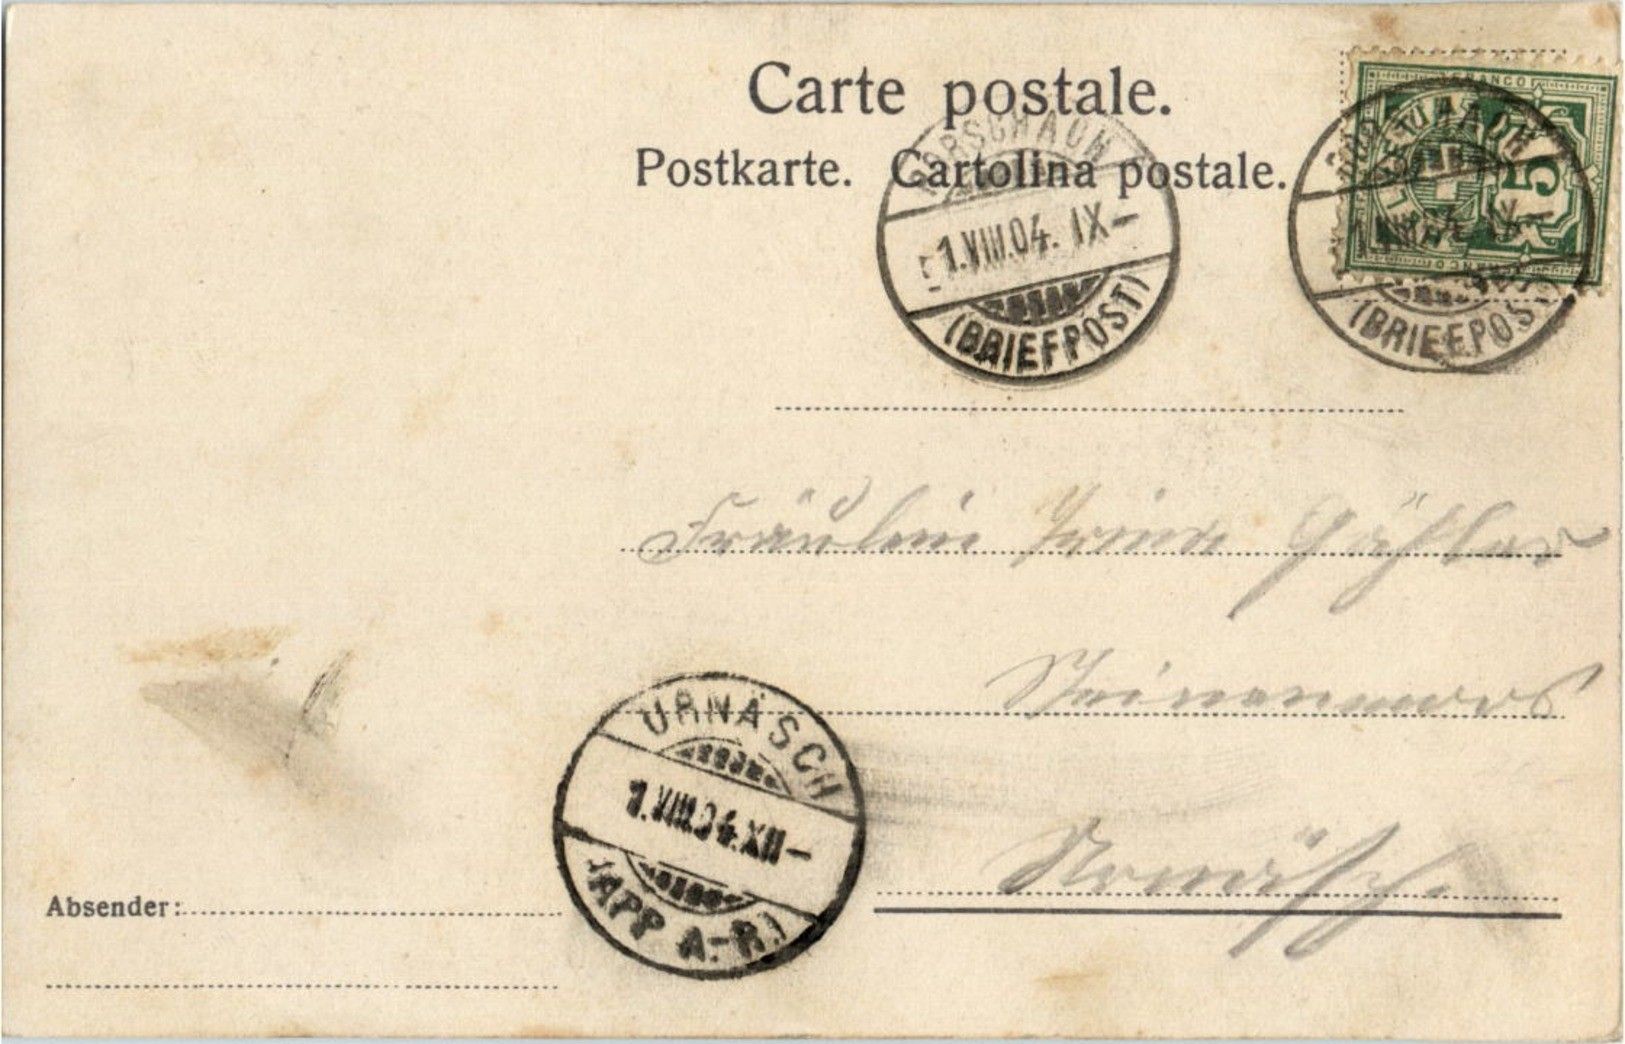 Carte postale.
Postkarte. Cartolina postale.
RORSCHACH
1.VIII.04. IX-
(BRIEFPOST)
FRANCO
5
(BRIEFPOST)
Fräulein
URNÄSCH
1.VIII.04.XII-
(APP A.-R.)
Urnäsch.
Absender: